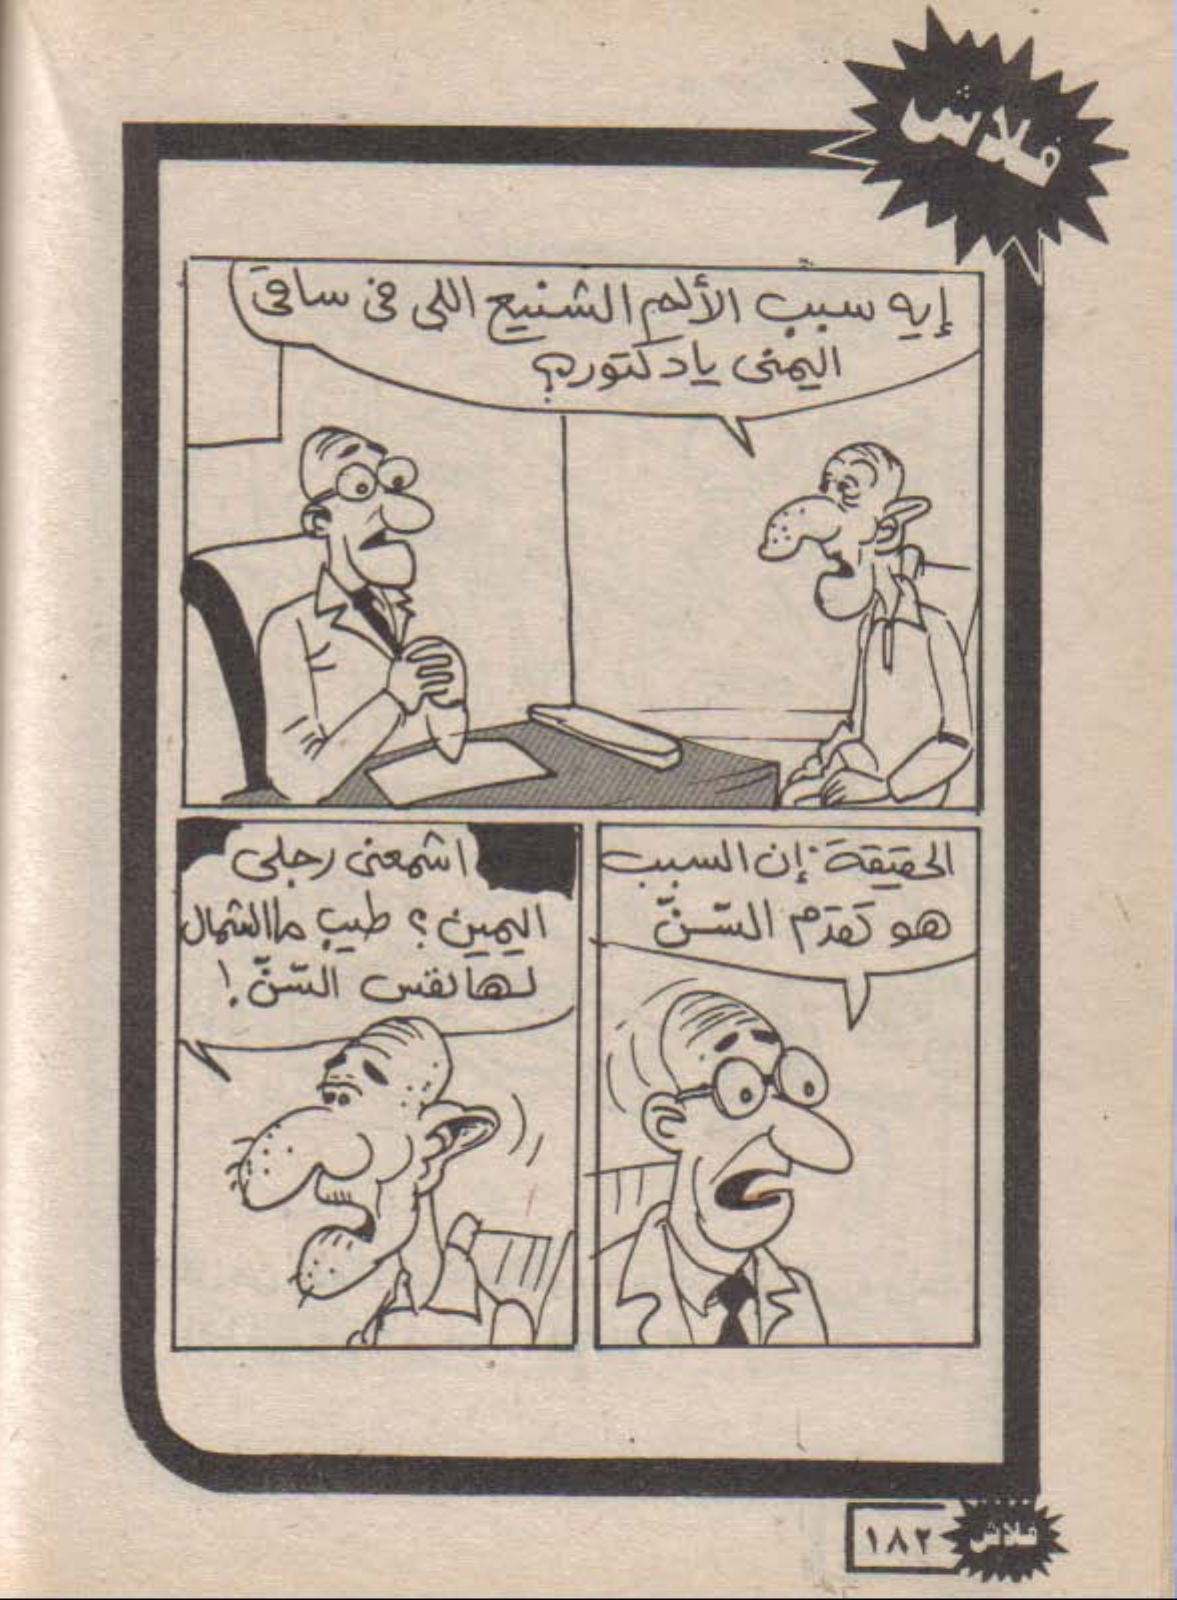 فلاش
إيه سبب الألم الشنيع اللى فى ساقى
اليمنى يا دكتور؟
الحقيقة إن السبب
هو تقدم السّنّ
اشمعنى رجلى
اليمين؟ طيب ما الشمال
لها نفس السّنّ!
١٨٢
فلاش